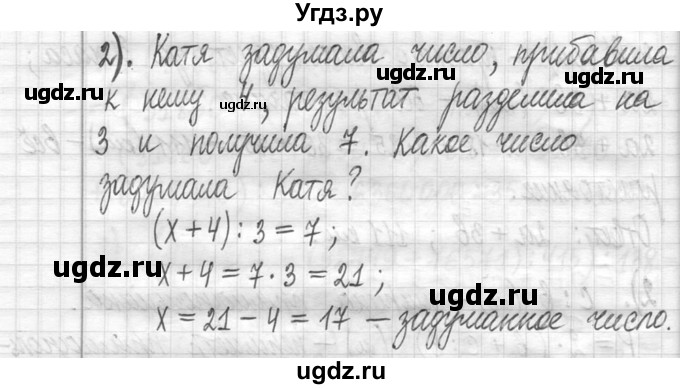 Угдз.ру
2). Катя задумала число, прибавила
к нему 4, результат разделила на
3 и получила 7. Какое число
задумала Катя?
(x+4):3=7;
x+4=7·3=21;
x=21-4=17 – задуманное число.
ugdz.ru
ugdz.ru
ugdz.ru
ugdz.ru
ugdz.ru
ugdz.ru
ugdz.ru
ugdz.ru
ugdz.ru
ugdz.ru